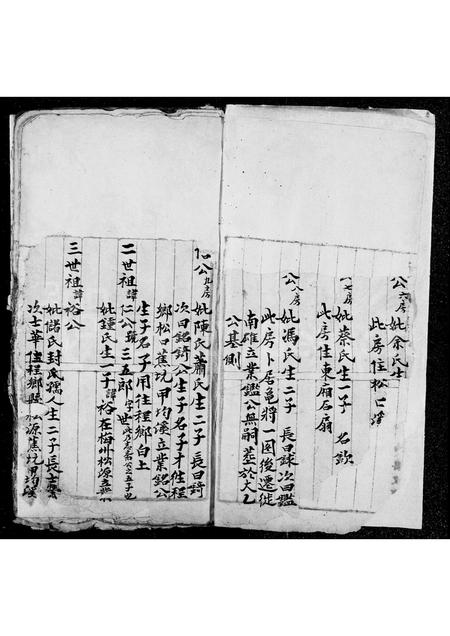 公六房妣余氏士
此房住松口
一七房妣蔡氏生一子名欽
此房住東廂石扇
公八房妣馮氏生二子長曰球次曰鑑
此房卜居龜將一圖後遷徙
南雄立業鑑公無嗣塟於大乙
公基側
仁公九房妣陳氏蕭氏生二子長曰錡
次曰銘錡公生子名子才住程
鄉松口蕉坑甲均溪立業銘公
生子名子用住程鄉白土
二世祖諱仁公號三五郎
妣鍾氏生一子諱裕在梅州松源立業
三世祖諱裕公
妣儲氏封孺人生二子長士
次士華住程鄉縣松源蕉坑甲均溪